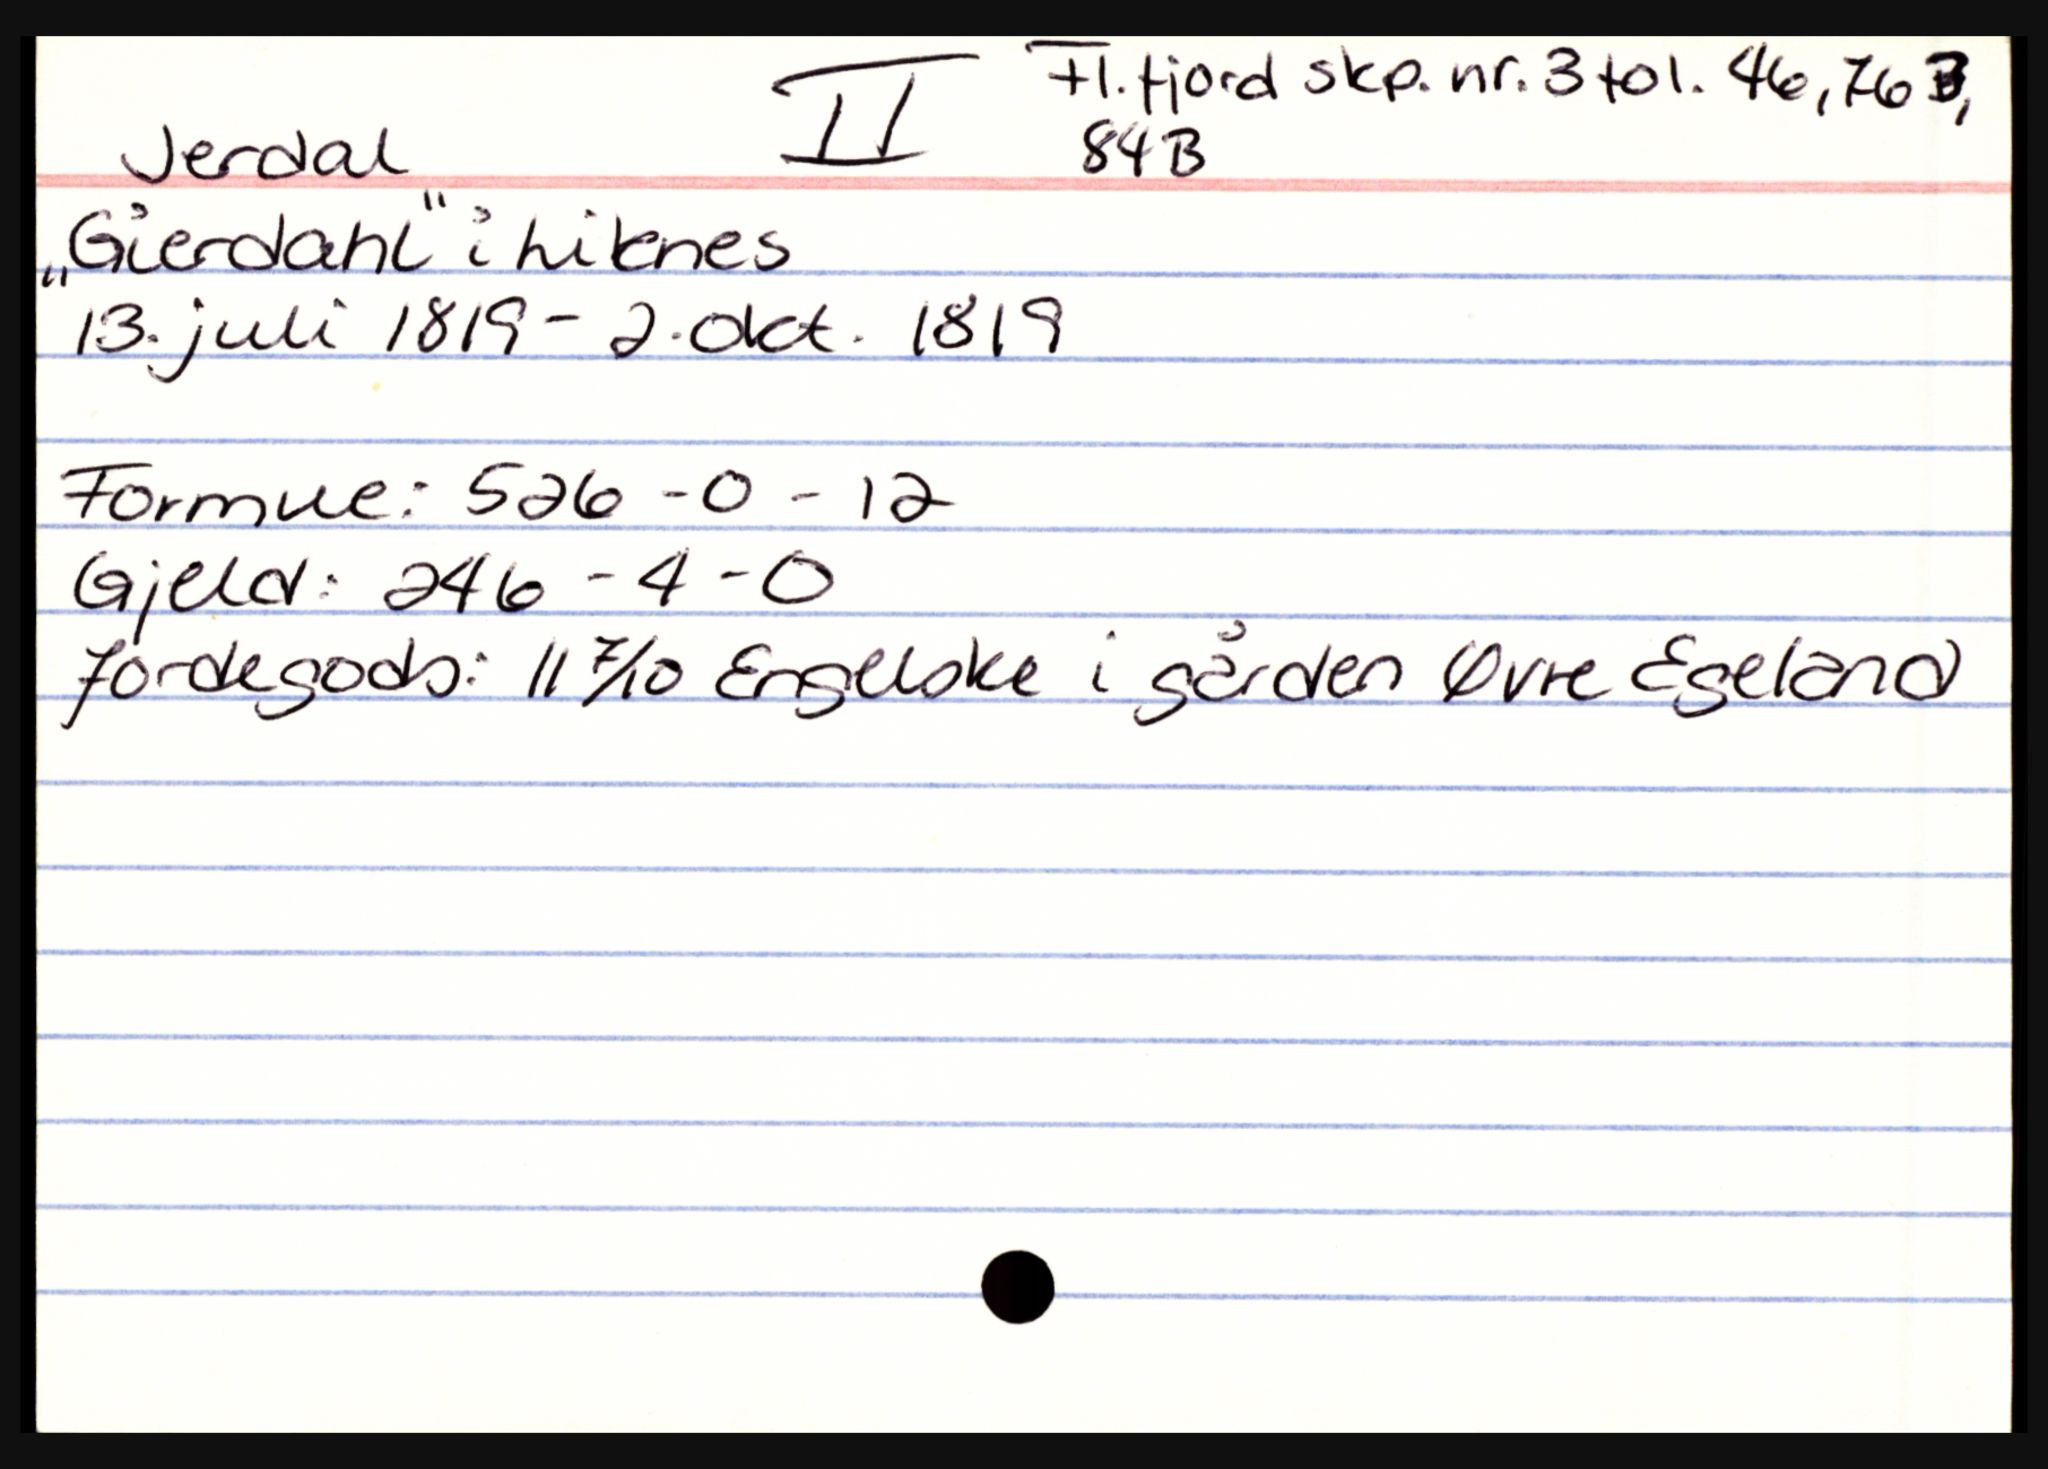 Jerdal II Fl. fjord skp. nr. 3 fol. 46, 76 B,
84 B
„Gierdahl" i Liknes
13. juli 1819 - 2. okt. 1819
Formue: 526 - 0 - 12
Gjeld: 246 - 4 - 0
Jordegods: 11 7/10 Engelske i gården Øvre Egeland